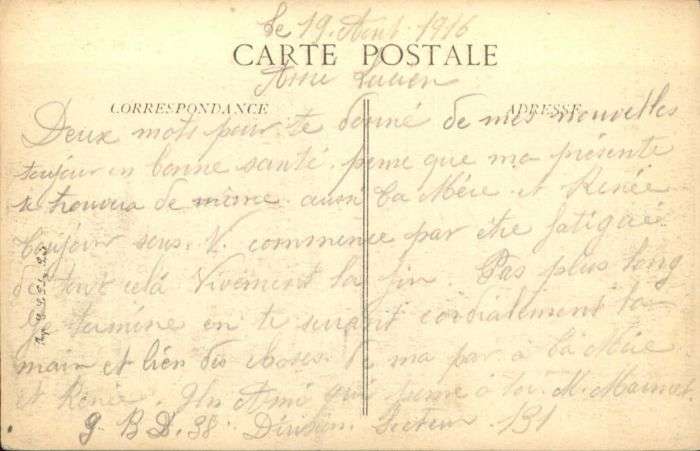 le 19 Aout 1916
CARTE POSTALE
Ami Lucien
CORRESPONDANCE
ADRESSE
Deux mots pour te donné de mes nouvelles
toujour en bonne santé. pense que ma présente
te trouvera de même aussi ta Mère et Renée
toujour sous. V. commence par être fatiguée
de tout celà Vivement la fin. Pas plus long
Je termine en te serrant cordialement la
main et bien des choses de ma par à ta Mère
et Renée. Un Ami qui pense à toi. M.
G. B D. 38e Division. Secteur. 131